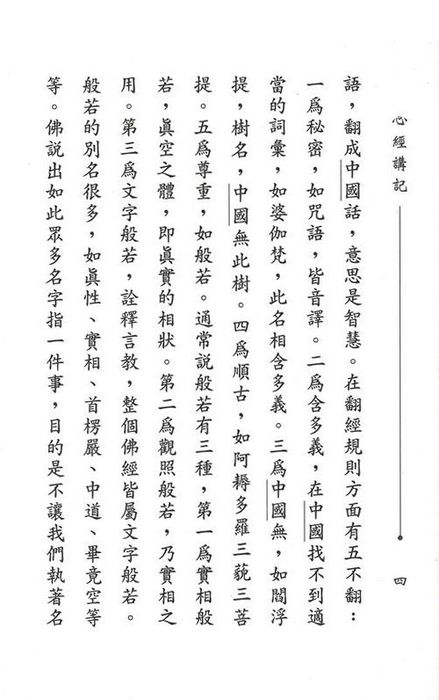 心經講記
四
語，翻成中國話，意思是智慧。在翻經規則方面有五不翻：
一爲秘密，如咒語，皆音譯。二爲含多義，在中國找不到適
當的詞彙，如婆伽梵，此名相含多義。三爲中國無，如閻浮
提，樹名，中國無此樹。四爲順古，如阿耨多羅三藐三菩
提。五爲尊重，如般若。通常說般若有三種，第一爲實相般
若，眞空之體，即眞實的相狀。第二爲觀照般若，乃實相之
用。第三爲文字般若，詮釋言教，整個佛經皆屬文字般若。
般若的別名很多，如眞性、實相、首楞嚴、中道、畢竟空等
等。佛說出如此眾多名字指一件事，目的是不讓我們執著名